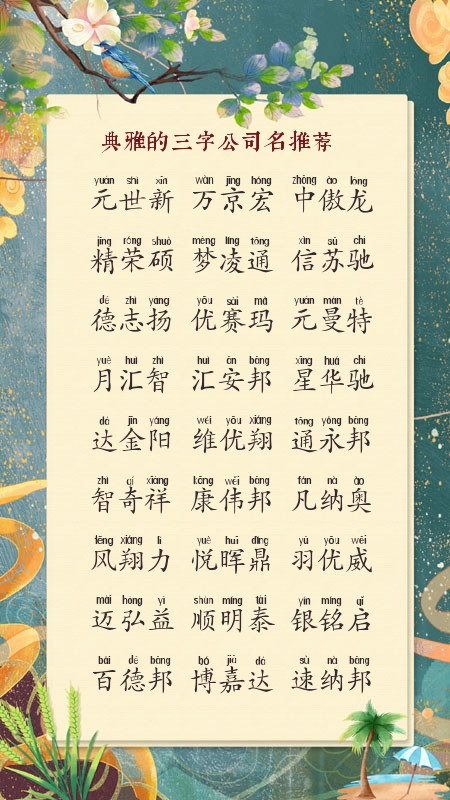 典雅的三字公司名推荐
yuán shì xīn wàn jīng hóng zhōng ào lóng
元世新 万京宏 中傲龙
jīng róng shuò mèng líng tōng xìn sū chí
精荣硕 梦凌通 信苏驰
dé zhì yáng yōu sài mǎ yuán màn tè
德志扬 优赛玛 元曼特
yuè huì zhì huì ān bāng xīng huá chí
月汇智 汇安邦 星华驰
dá jīn yáng wéi yōu xiáng tōng yǒng bāng
达金阳 维优翔 通永邦
zhì qí xiáng kāng wěi bāng fán nà ào
智奇祥 康伟邦 凡纳奥
fēng xiáng lì yuè huī dǐng yǔ yōu wēi
风翔力 悦晖鼎 羽优威
mài hóng yì shùn míng tài yín míng qǐ
迈弘益 顺明泰 银铭启
bǎi dé bāng bó jiā dá sù nà bāng
百德邦 博嘉达 速纳邦